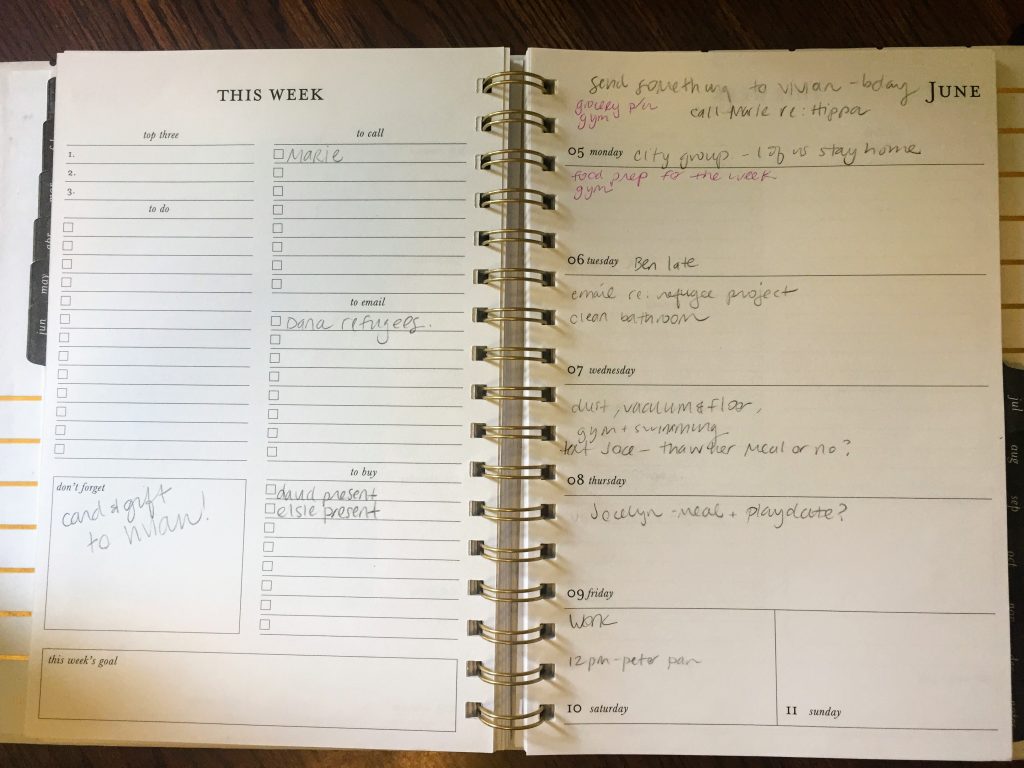 THIS WEEK
top three
1.
2.
3.
to do
don't forget
card & gift
to vivian!
to call
Marie
to email
Dana refugees.
to buy
david present
elsie present
this week's goal
JUNE
send something to vivian - bday
grocery p/u
gym
call Marie re: Hippa
05 monday city group - 1 of us stay home
food prep for the week
gym
06 tuesday Ben late
email re. refugee project
clean bathroom
07 wednesday
dust, vacuum & floor,
gym + swimming
text Joce - thaw her meal or no?
08 thursday
Jocelyn - meal + playdate?
09 friday
Work
12pm - peter pan
10 saturday
11 sunday
may
jun
jul
aug
sep